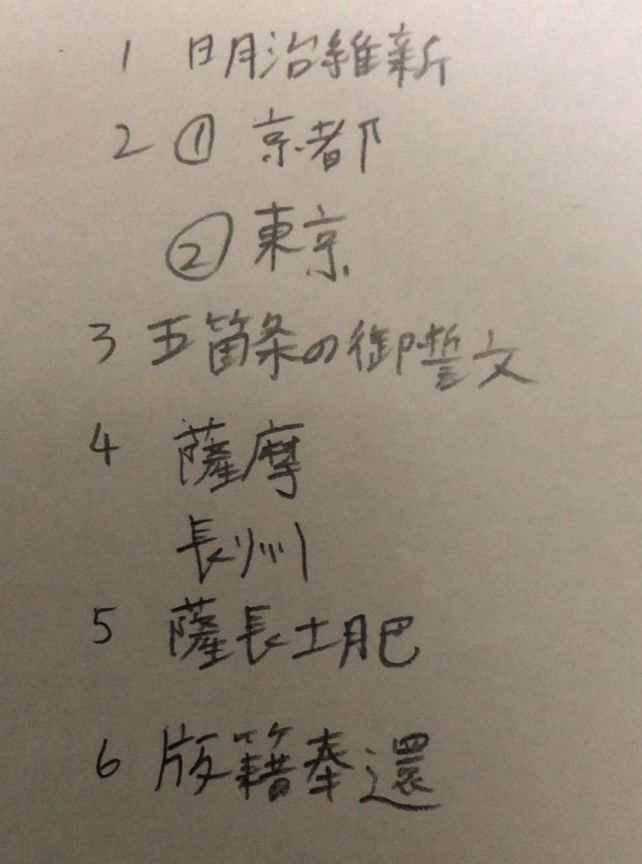 1 明治維新
2 ① 京都
② 東京
3 五箇条の御誓文
4 薩摩
長州
5 薩長土肥
6 版籍奉還